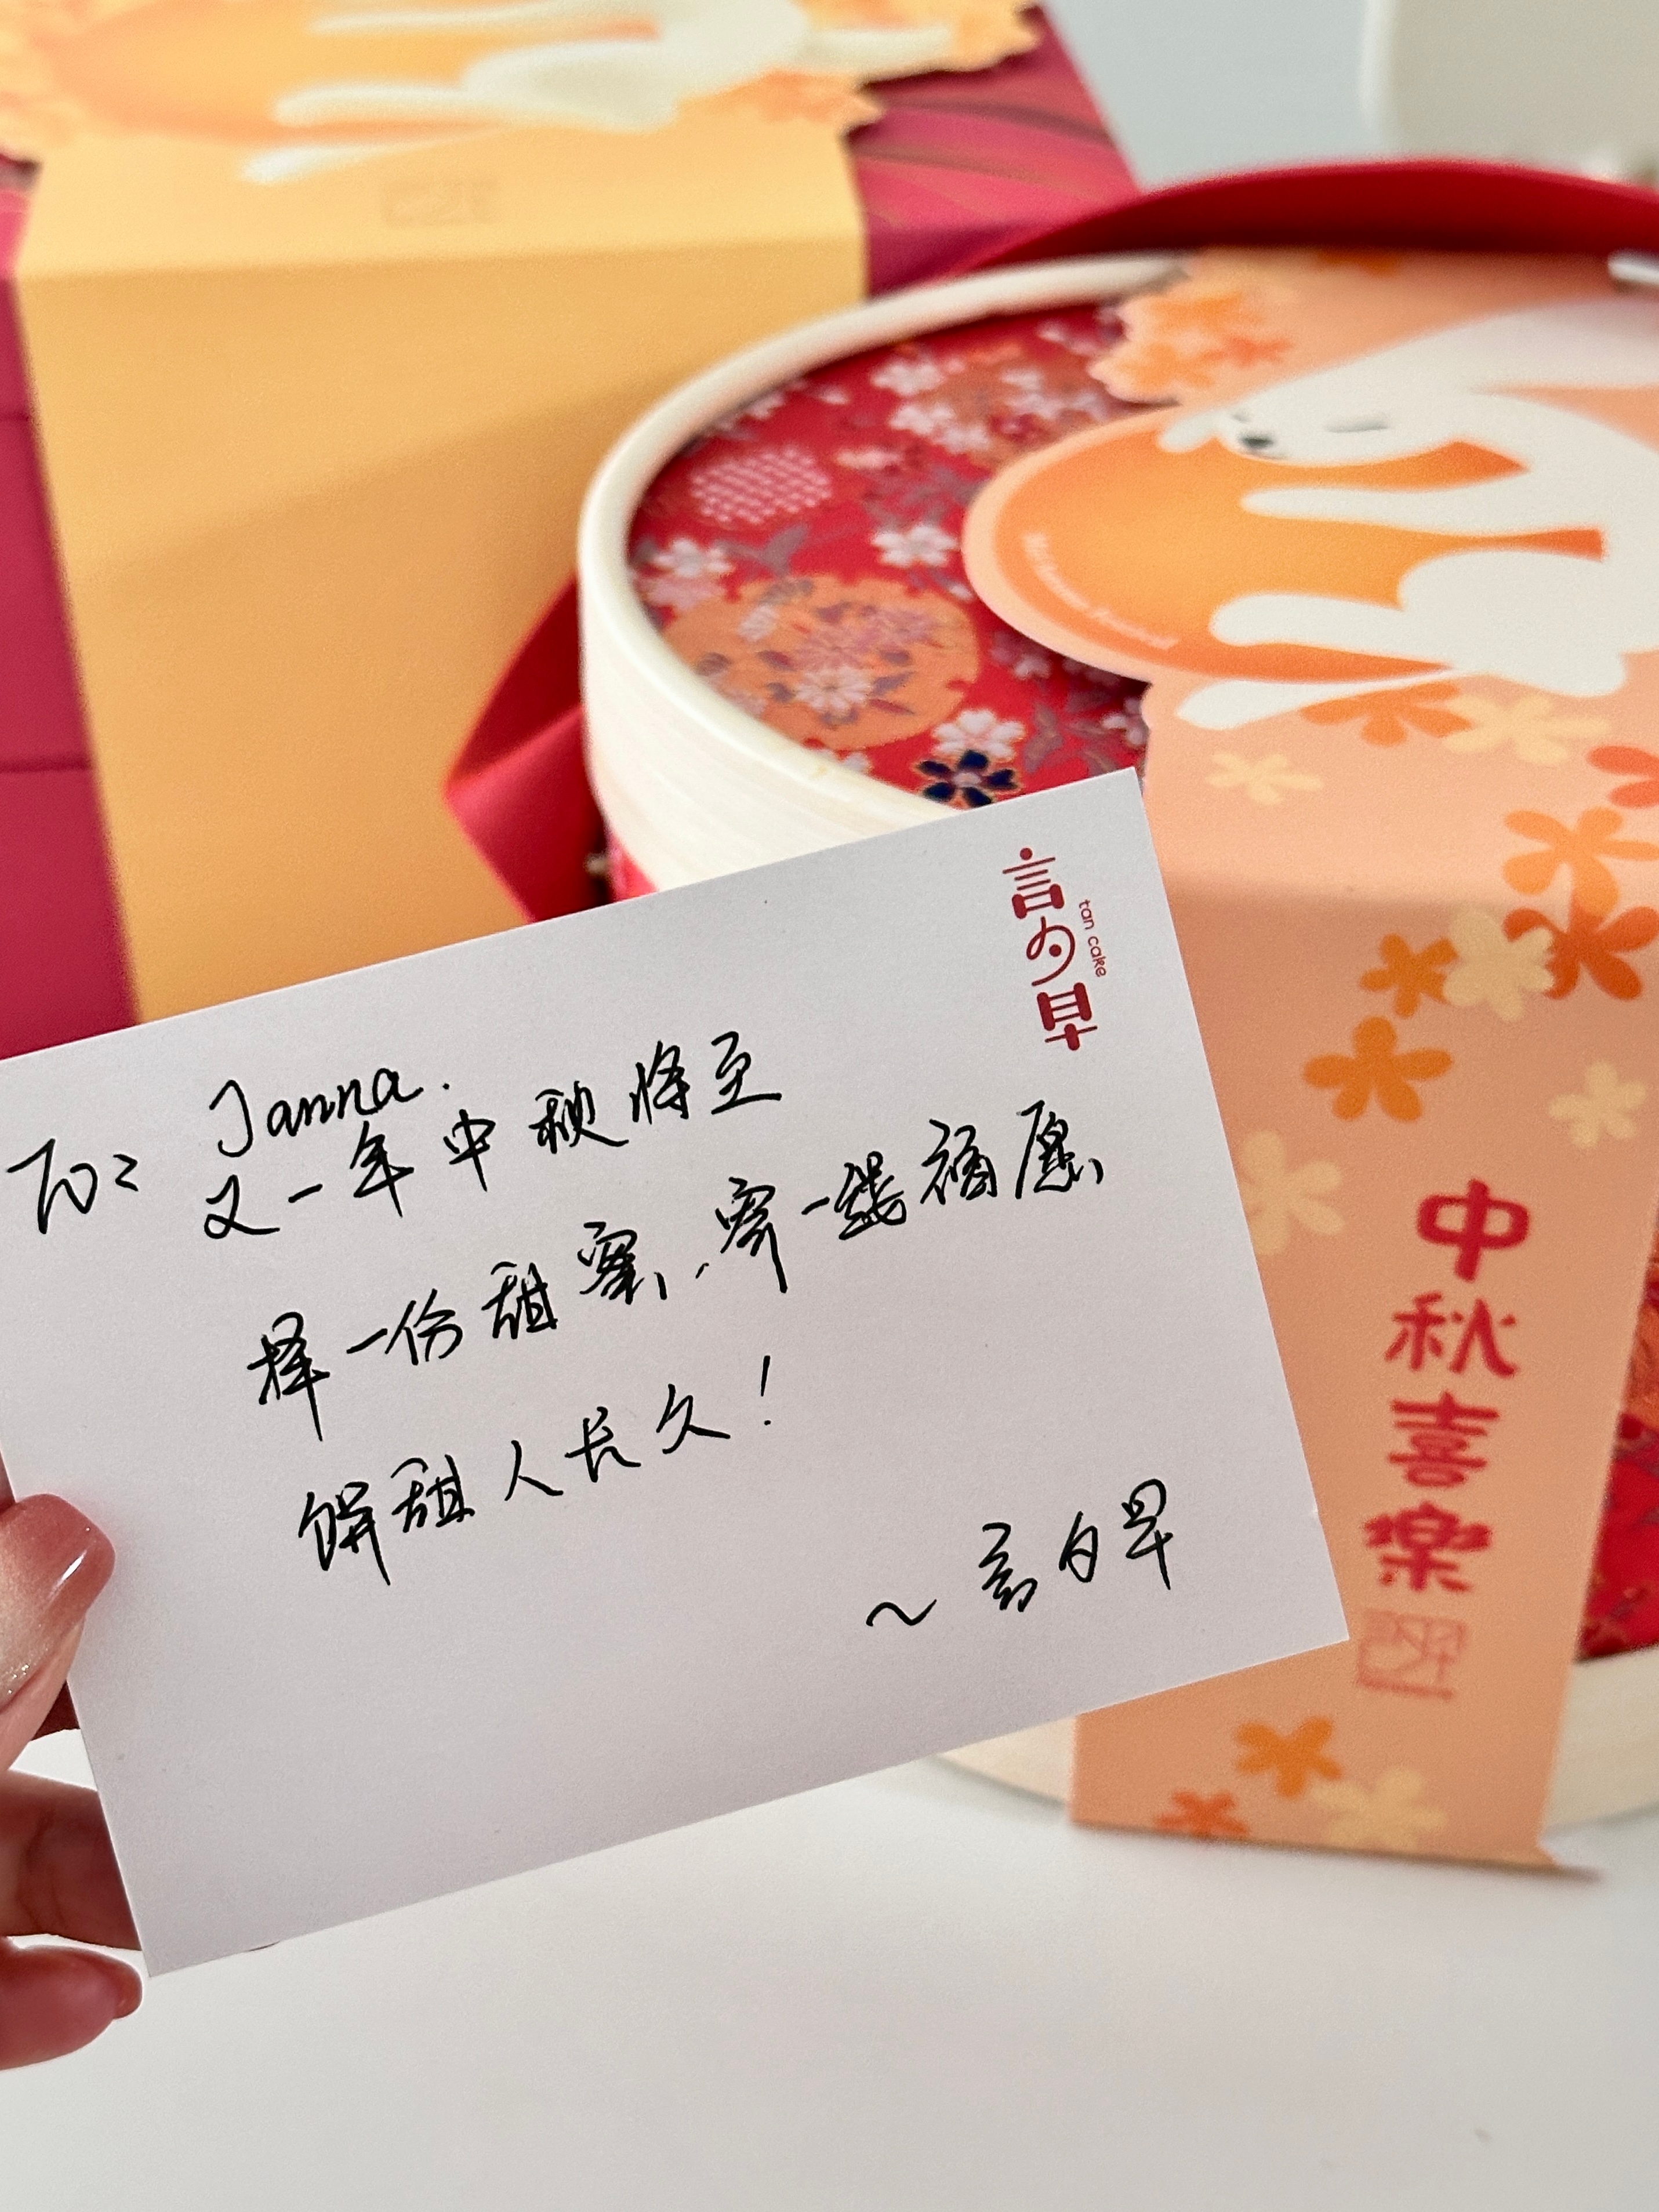 言白早
tan cake
To: Janna.
又一年中秋将至
择一份甜蜜、寄一线福愿
饼甜人长久！
~言白早
中秋喜樂